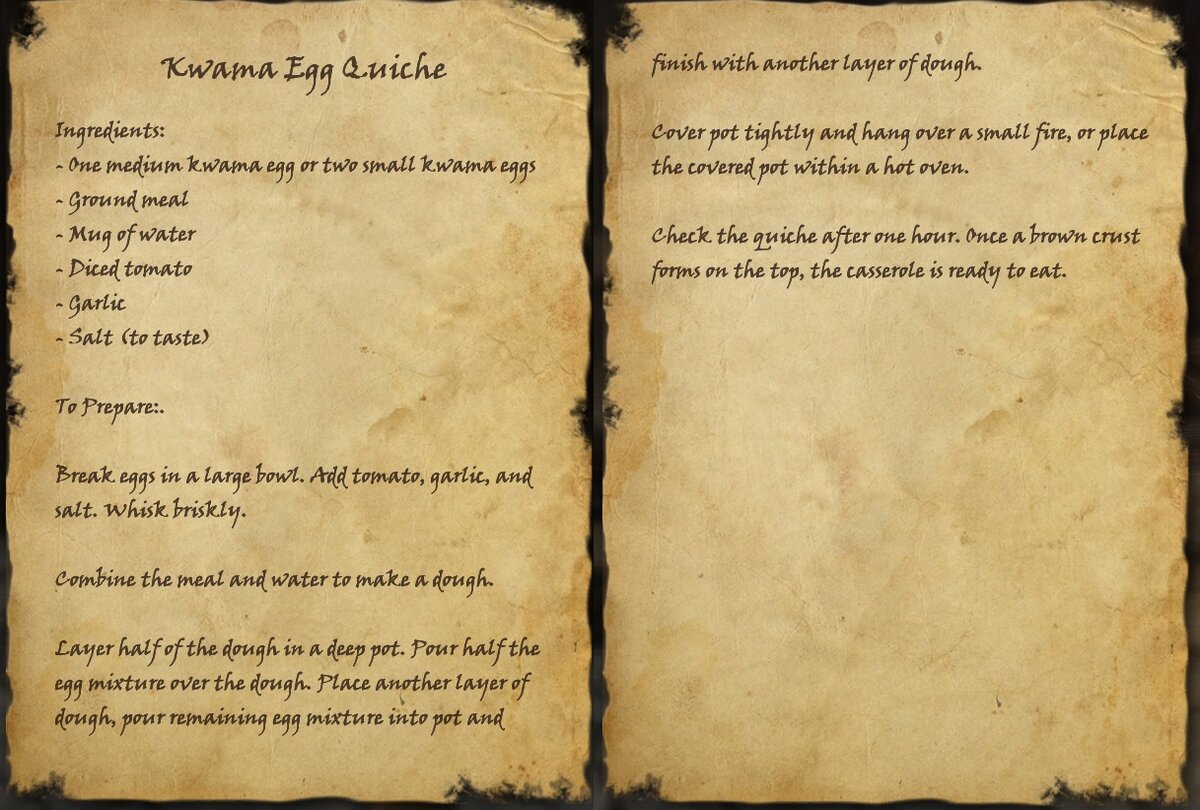 Kwama Egg Quiche
Ingredients:
- One medium kwama egg or two small kwama eggs
- Ground meal
- Mug of water
- Diced tomato
- Garlic
- Salt (to taste)
To Prepare:.
Break eggs in a large bowl. Add tomato, garlic, and
salt. Whisk briskly.
Combine the meal and water to make a dough.
Layer half of the dough in a deep pot. Pour half the
egg mixture over the dough. Place another layer of
dough, pour remaining egg mixture into pot and
finish with another layer of dough.
Cover pot tightly and hang over a small fire, or place
the covered pot within a hot oven.
Check the quiche after one hour. Once a brown crust
forms on the top, the casserole is ready to eat.